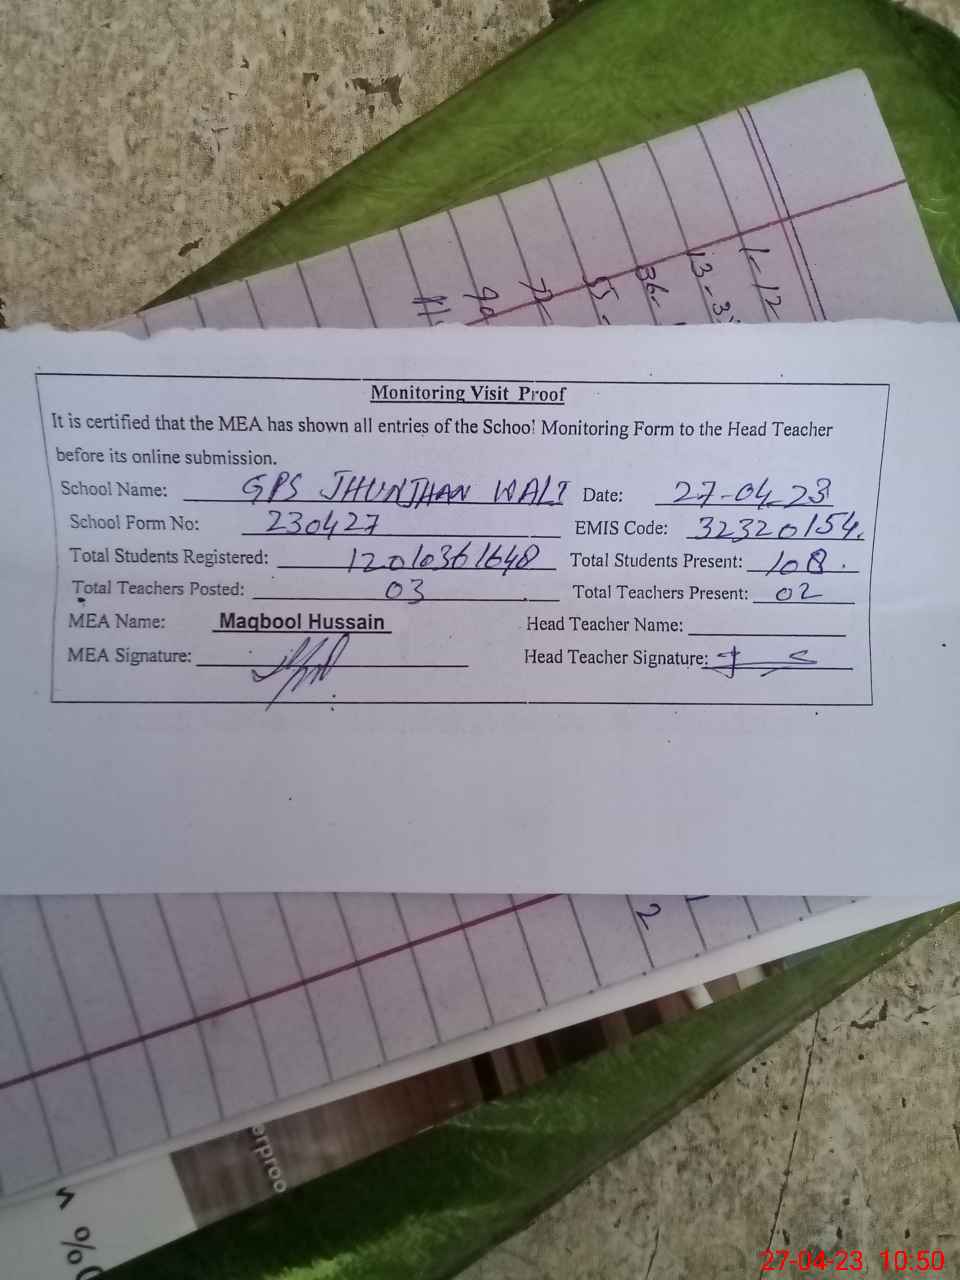 1-12
13-3
36-
55-
72-
90
11
Monitoring Visit Proof
It is certified that the MEA has shown all entries of the School Monitoring Form to the Head Teacher
before its online submission.
School Name: GPS JHUNJHAN WALI Date: 27-04-23
School Form No: 230427 EMIS Code: 32320154.
Total Students Registered: 12010361648 Total Students Present: 108.
Total Teachers Posted: 03 Total Teachers Present: 02
MEA Name: Maqbool Hussain Head Teacher Name:
MEA Signature: Head Teacher Signature:
2
erproo
%
27-04-23 10:50